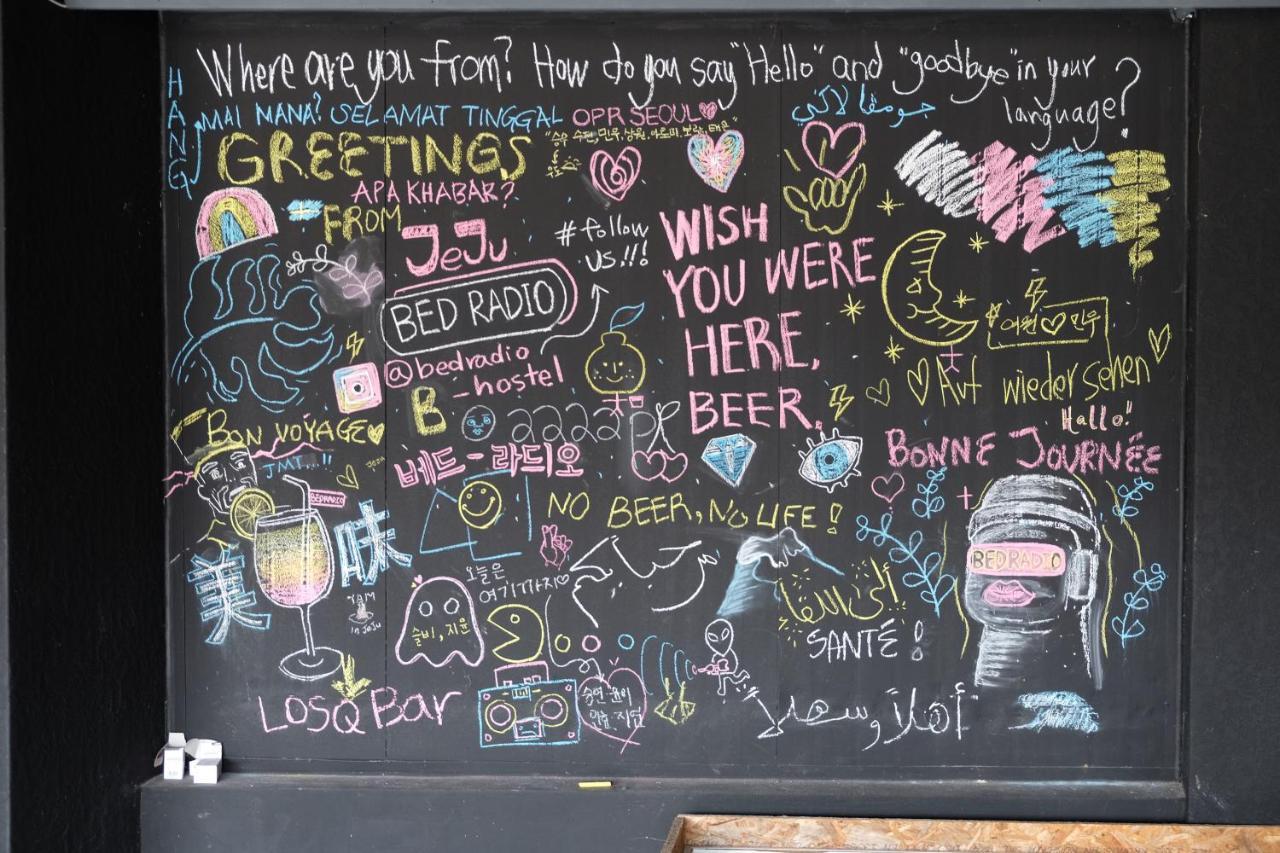 Where are you from? How do you say "Hello" and "goodbye" in your
language?
HANG
MAI MANA? SELAMAT TINGGAL
OPR SEOUL
GREETINGS
APA KHABAR?
FROM
JeJu
BED RADIO
#follow
us!!!
@bedradio
_hostel
B
WISH
YOU WERE
HERE,
BEER.
여원♡민우
Auf wiedersehen
Hallo!
BONNE JOURNÉE
BON VOYAGE
JMT...!!
BEDRADIO
aaaa
베드-라디오
NO BEER, NO LIFE!
美
味
YAM
in JeJu
오늘은
여기까지♡
슬비, 지윤
مرحبا
إلى اللقا
SANTÉ!
BEDRADIO
أهلاً وسهلاً
LOSQ Bar